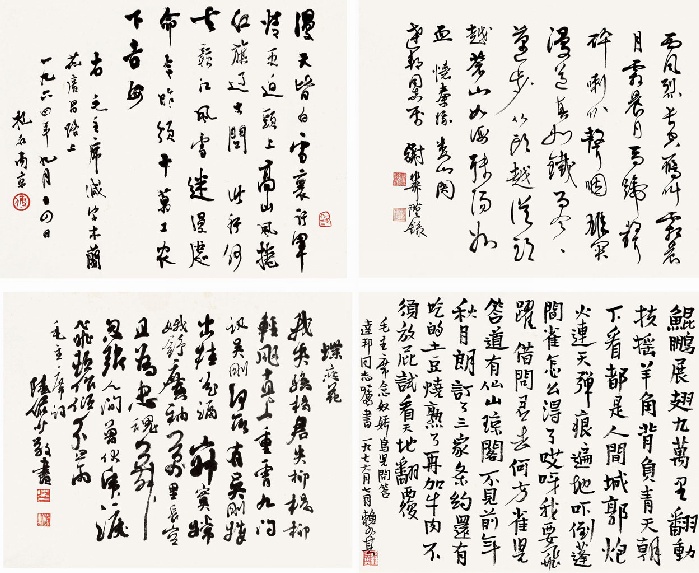 漫天皆白雪裹行軍
情更迫頭上高山風捲
红旗過大関 此行何
去贛江風雪迷漫處
命令昨頒十萬工農
下吉安
右毛主席減字木蘭
花廣昌路上
一九六四年九月十四日
西風烈長空雁叫霜晨
月霜晨月馬蹄聲
碎喇叭聲咽雄関
漫道真如鐵而今
邁步从頭越從頭
越蒼山如海殘陽如
血 憶秦娥 婁山関
達邦同志属
蝶恋花
我失驕楊君失柳楊柳
輕颺直上重霄九問
訊吳剛何所有吳剛捧
出桂花酒寂寞嫦
娥舒廣袖萬里長空
且為忠魂舞
忽報人间曾伏虎淚
飛頓作傾盆雨
毛主席詞
陸儼少敬書
鯤鵬展翅九萬里翻動
扶摇羊角背負青天朝
下看都是人間城郭炮
火連天彈痕遍地吓倒蓬
間雀怎么得了哎呀我要飛
躍借問君去何方雀児
答道有仙山瓊閣不見前年
秋月朗訂了三家条约還有
吃的土豆燒熟了再加牛肉不
須放屁試看天地翻覆
毛主席念奴娇鳥児問答
達邦同志屬書 一九七六年七月